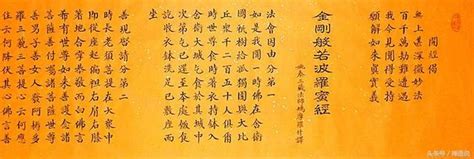 開經偈
無上甚深微妙法
百千萬劫難遭遇
我今見聞得受持
願解如來真實義
金剛般若波羅蜜經
姚秦三藏法師鳩摩羅什譯
法會因由分第一
如是我聞一時佛在舍衛
國祇樹給孤獨園與大比
丘眾千二百五十人俱爾
時世尊食時著衣持鉢入
舍衛大城乞食於其城中
次第乞已還至本處飯食
訖收衣鉢洗足已敷座而
坐
善現啟請分第二
時長老須菩提在大眾中
即從座起偏袒右肩右膝
著地合掌恭敬而白佛言
希有世尊如來善護念諸
菩薩善付囑諸菩薩世尊
善男子善女人發阿耨多
羅三藐三菩提心云何應
住云何降伏其心佛言善
头条号